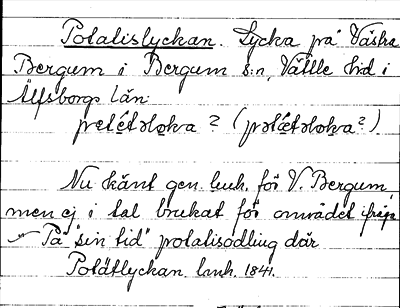 Potatislyckan. Lycka på Västra
Bergum i Bergum s:n, Vättle hd i
Älfsborgs län.
petétəloka ? (pətǽtəloka?)
Nu känt gen. lmk. för V. Bergum,
men ej i tal brukat för området ifråga
"På "sin tid" potatisodling där
Potätlyckan. lmk. 1841.